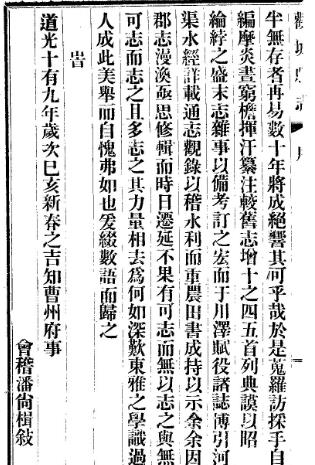 觀城縣志
序
半無存者再易數十年將成絕響其可乎哉於是蒐羅訪採手自
編摩炎晝窮檐揮汗纂注較舊志增十之四五首列典謨以昭
綸綍之盛末志雜事以備考訂之宏而于川澤賦役諸誌博引河
渠水經詳載通志觀錄以稽水利而重農田書成持以示余余因
郡志漫漶亟思修輯而時日遷延不果有可志而無以志之與無
可志而志之且多志之其力量相去為何如深歎東雅之學識過
人成此美舉而自愧弗如也爰綴數語而歸之
旹
道光十有九年歲次己亥新春之吉知曹州府事
會稽潘尙楫敍